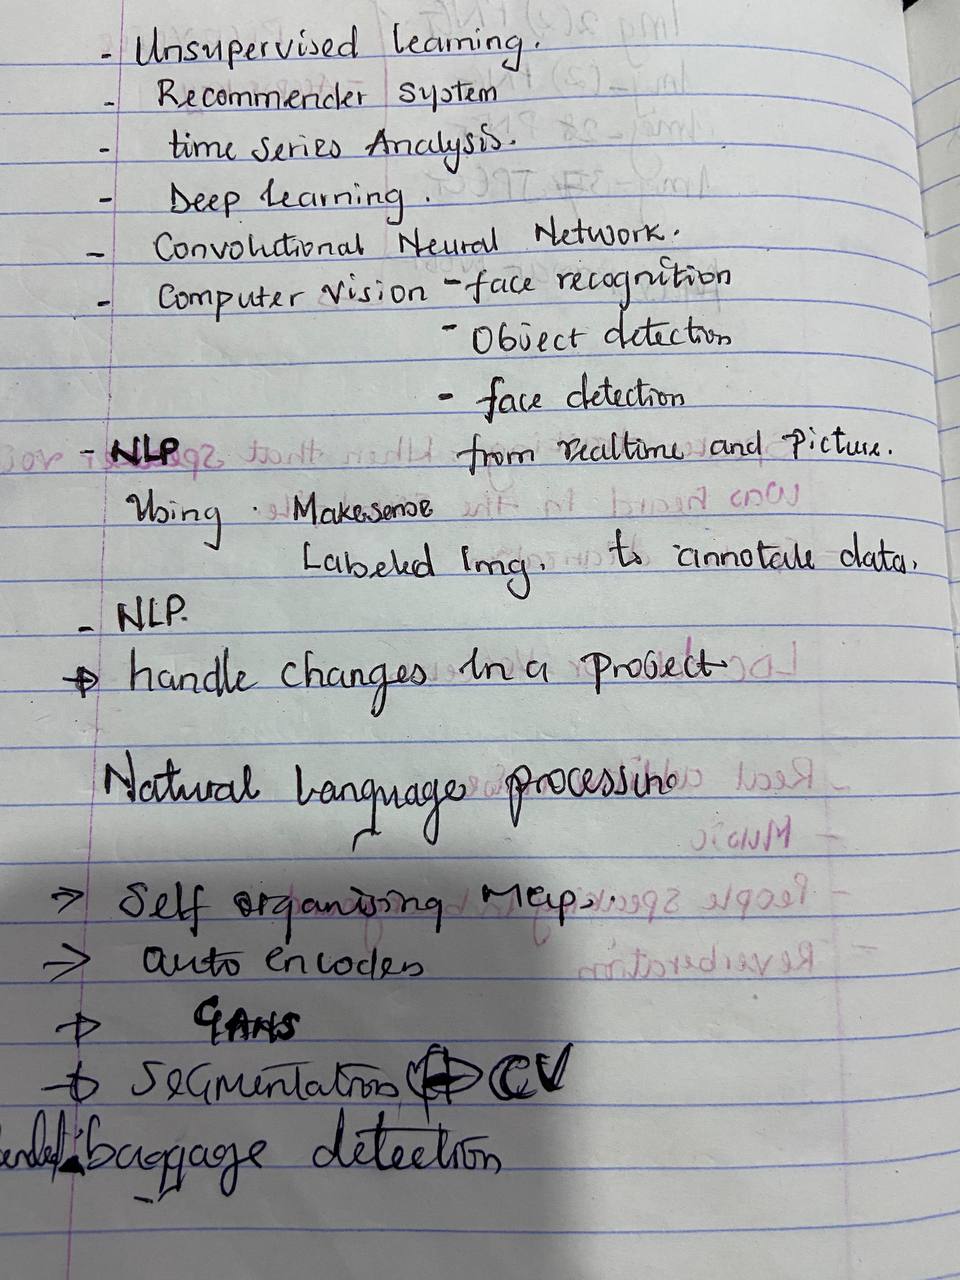 - Unsupervised learning.
- Recommender System
- time series Analysis.
- Deep learning.
- Convolutional Neural Network.
- Computer vision - face recognition
- Object detection
- face detection
- NLP from realtime and Picture.
Using . Makesense
Labeled Img. to annotate data.
- NLP.
→ handle changes in a project
Natural Language processing
→ Self organising Maps.
→ auto encoders
→ GANS
→ Segmentation → CV
baggage detection